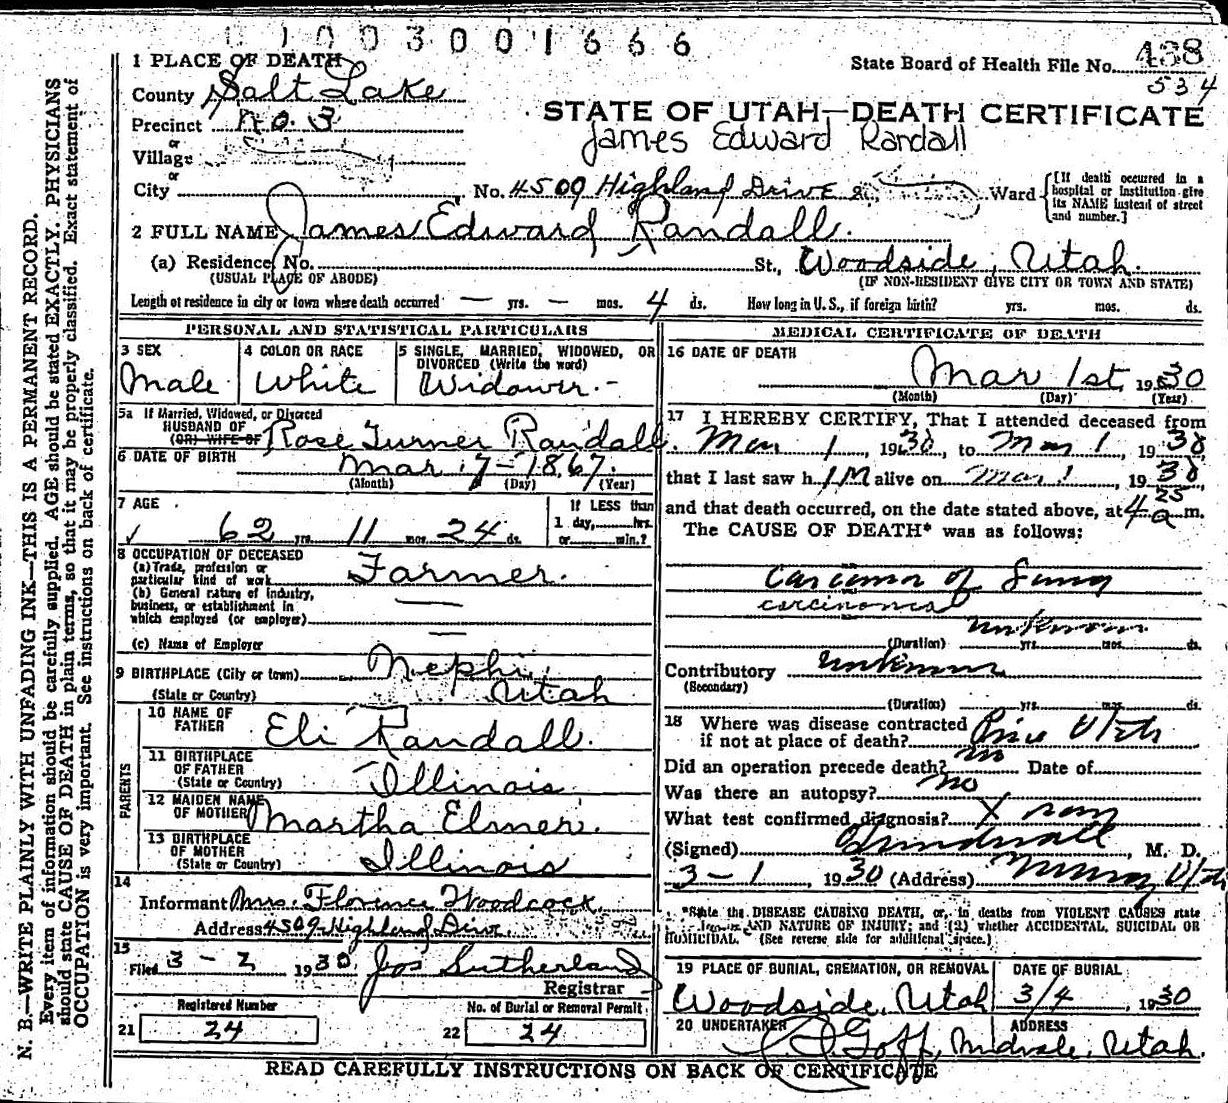 0 1 0 0 3 0 0 1 6 6 6
State Board of Health File No. 438
534
1 PLACE OF DEATH
County Salt Lake
Precinct No. 3
or
Village
or
City
STATE OF UTAH—DEATH CERTIFICATE
James Edward Randall
No. 4509 Highland Drive St., Ward
[If death occurred in a
hospital or Institution give
its NAME instead of street
and number.]
2 FULL NAME James Edward Randall.
(a) Residence, No. St., Woodside, Utah.
(USUAL PLACE OF ABODE) (IF NON-RESIDENT GIVE CITY OR TOWN AND STATE)
Length of residence in city or town where death occurred — yrs. — mos. 4 ds. How long in U. S., if foreign birth? yrs. mos. ds.
PERSONAL AND STATISTICAL PARTICULARS
3 SEX
Male
4 COLOR OR RACE
White
5 SINGLE, MARRIED, WIDOWED, OR
DIVORCED (Write the word)
Widower.-
5a If Married, Widowed, or Divorced
HUSBAND OF
(OR) WIFE OF Rose Turner Randall.
6 DATE OF BIRTH Mar. 7-1867.
(Month) (Day) (Year)
7 AGE
62 yrs. 11 mos. 24 ds.
If LESS than
1 day, hrs.
or min.?
8 OCCUPATION OF DECEASED
(a) Trade, profession or
particular kind of work Farmer.
(b) General nature of industry,
business, or establishment in
which employed (or employer) —
(c) Name of Employer —
9 BIRTHPLACE (City or town) Nephi,
(State or Country) Utah
PARENTS
10 NAME OF
FATHER Eli Randall.
11 BIRTHPLACE
OF FATHER
(State or Country) Illinois
12 MAIDEN NAME
OF MOTHER Martha Elmer.
13 BIRTHPLACE
OF MOTHER
(State or Country) Illinois
14
Informant Mrs. Florence Woodcock
Address 4509 Highland Drive
15
Filed 3-2 1930 Jos Sutherland
Registrar
Registered Number
21 24
No. of Burial or Removal Permit
22 24
MEDICAL CERTIFICATE OF DEATH
16 DATE OF DEATH
Mar 1st, 1930
(Month) (Day) (Year)
17 I HEREBY CERTIFY, That I attended deceased from
Mar 1, 1930, to Mar 1, 1930,
that I last saw him alive on Mar 1, 1930,
and that death occurred, on the date stated above, at 4 25 a m.
The CAUSE OF DEATH* was as follows:
Carcinom of Lung
carcinoma
unknown
(Duration) yrs. mos. ds.
Contributory unknown
(Secondary)
(Duration) yrs. mos. ds.
18 Where was disease contracted
if not at place of death? Price Utah
Did an operation precede death? no Date of
Was there an autopsy? no
What test confirmed diagnosis? X ray
(Signed) , M. D.
3-1, 1930 (Address) Murray Utah
*State the DISEASE CAUSING DEATH, or, in deaths from VIOLENT CAUSES state
AND NATURE OF INJURY; and (2) whether ACCIDENTAL, SUICIDAL OR
HOMICIDAL. (See reverse side for additional space.)
19 PLACE OF BURIAL, CREMATION, OR REMOVAL
Woodside, Utah
DATE OF BURIAL
3/4, 1930
20 UNDERTAKER ADDRESS
Goff, Midvale, Utah.
READ CAREFULLY INSTRUCTIONS ON BACK OF CERTIFICATE
N. B.—WRITE PLAINLY WITH UNFADING INK—THIS IS A PERMANENT RECORD.
Every item of information should be carefully supplied. AGE should be stated EXACTLY. PHYSICIANS
should state CAUSE OF DEATH in plain terms, so that it may be properly classified. Exact statement of
OCCUPATION is very important. See instructions on back of certificate.